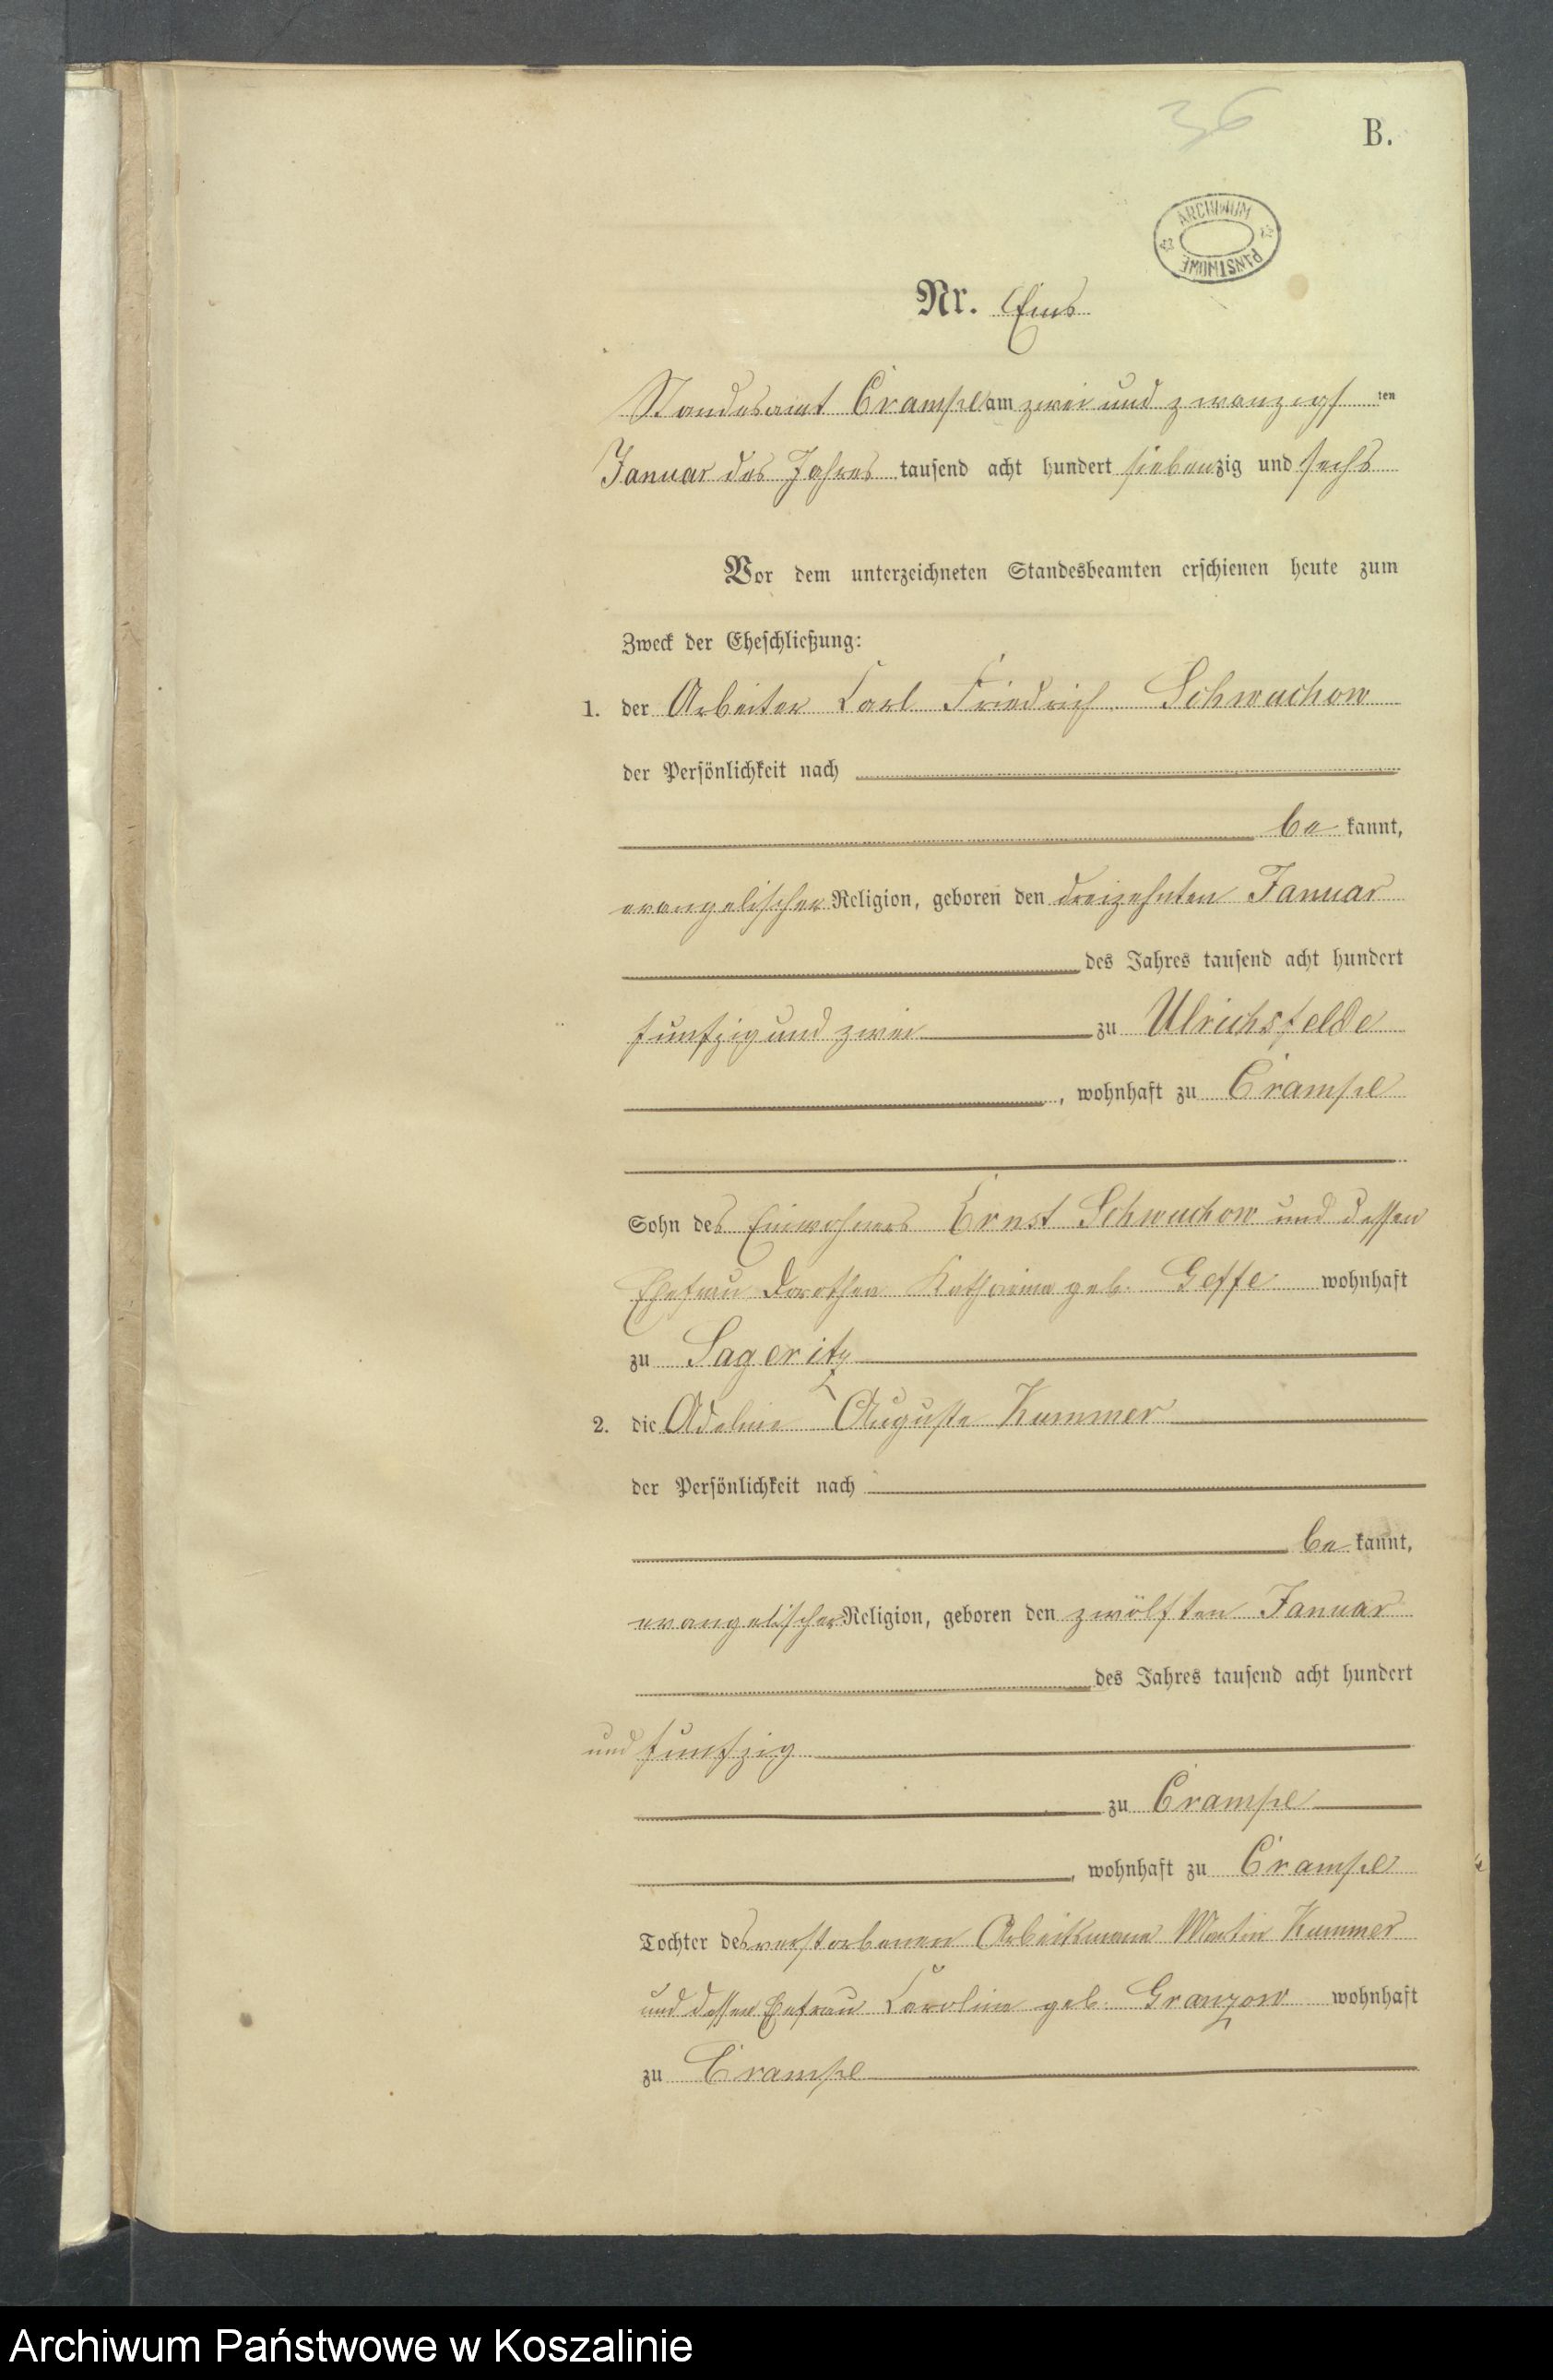 36
B.
ARCHIWUM PAŃSTWOWE
Nr. Eins
Standesamt Crampe am zwei und zwanzigsten
Januar des Jahres tausend acht hundert siebenzig und sechs
Vor dem unterzeichneten Standesbeamten erschienen heute zum
Zweck der Eheschließung:
1. der Arbeiter Carl Friedrich Schwuchow
der Persönlichkeit nach
be kannt,
evangelischer Religion, geboren den dreizehnten Januar
des Jahres tausend acht hundert
funfzig und zwei zu Ulrichsfelde
, wohnhaft zu Crampe
Sohn des Einwohners Ernst Schwuchow und dessen
Ehefrau Dorothea Katharina geb. Geffe wohnhaft
zu Sageritz
2. die Adeline Auguste Kummer
der Persönlichkeit nach
be kannt,
evangelischer Religion, geboren den zwölften Januar
des Jahres tausend acht hundert
und funfzig
zu Crampe
, wohnhaft zu Crampe
Tochter des verstorbenen Arbeitsmann Martin Kummer
und dessen Ehefrau Caroline geb. Granzow wohnhaft
zu Crampe
Archiwum Państwowe w Koszalinie